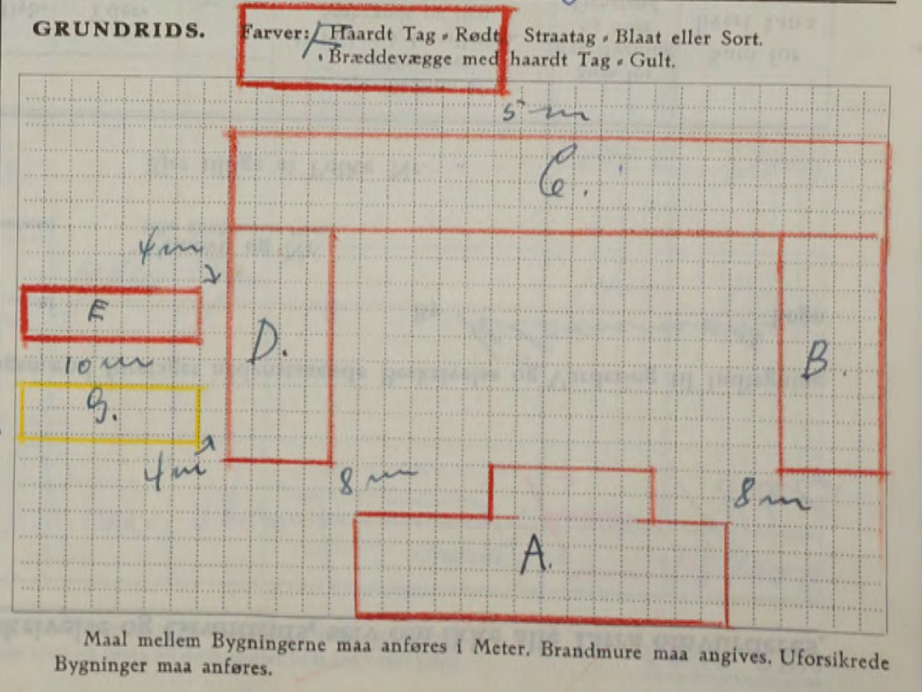 GRUNDRIDS. Farver: F Haardt Tag = Rødt, Straatag = Blaat eller Sort.
Bræddevægge med haardt Tag = Gult.
5 m
C.
4 m
E
D.
B.
10 m
G.
4 m
8 m
8 m
A.
Maal mellem Bygningerne maa anføres i Meter. Brandmure maa angives. Uforsikrede
Bygninger maa anføres.